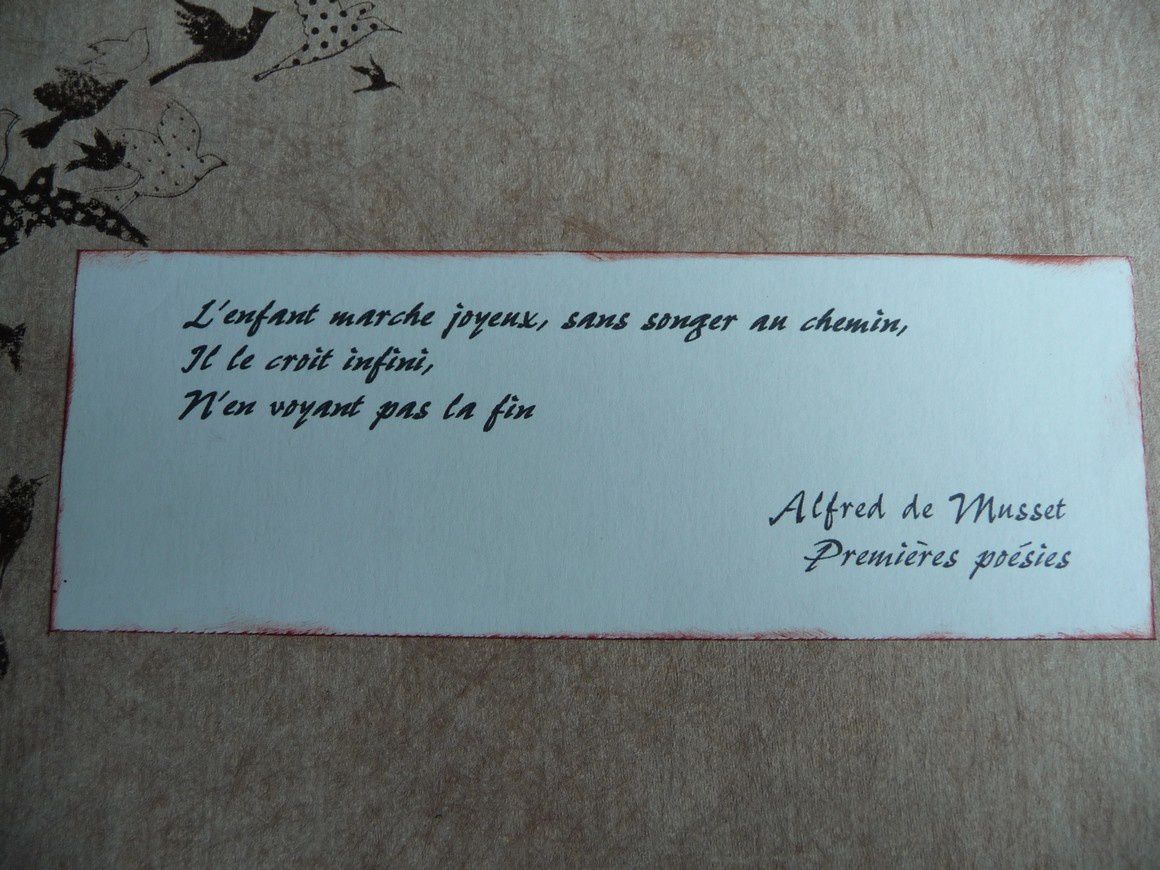 L'enfant marche joyeux, sans songer au chemin,
Il le croit infini,
N'en voyant pas la fin
Alfred de Musset
Premières poésies